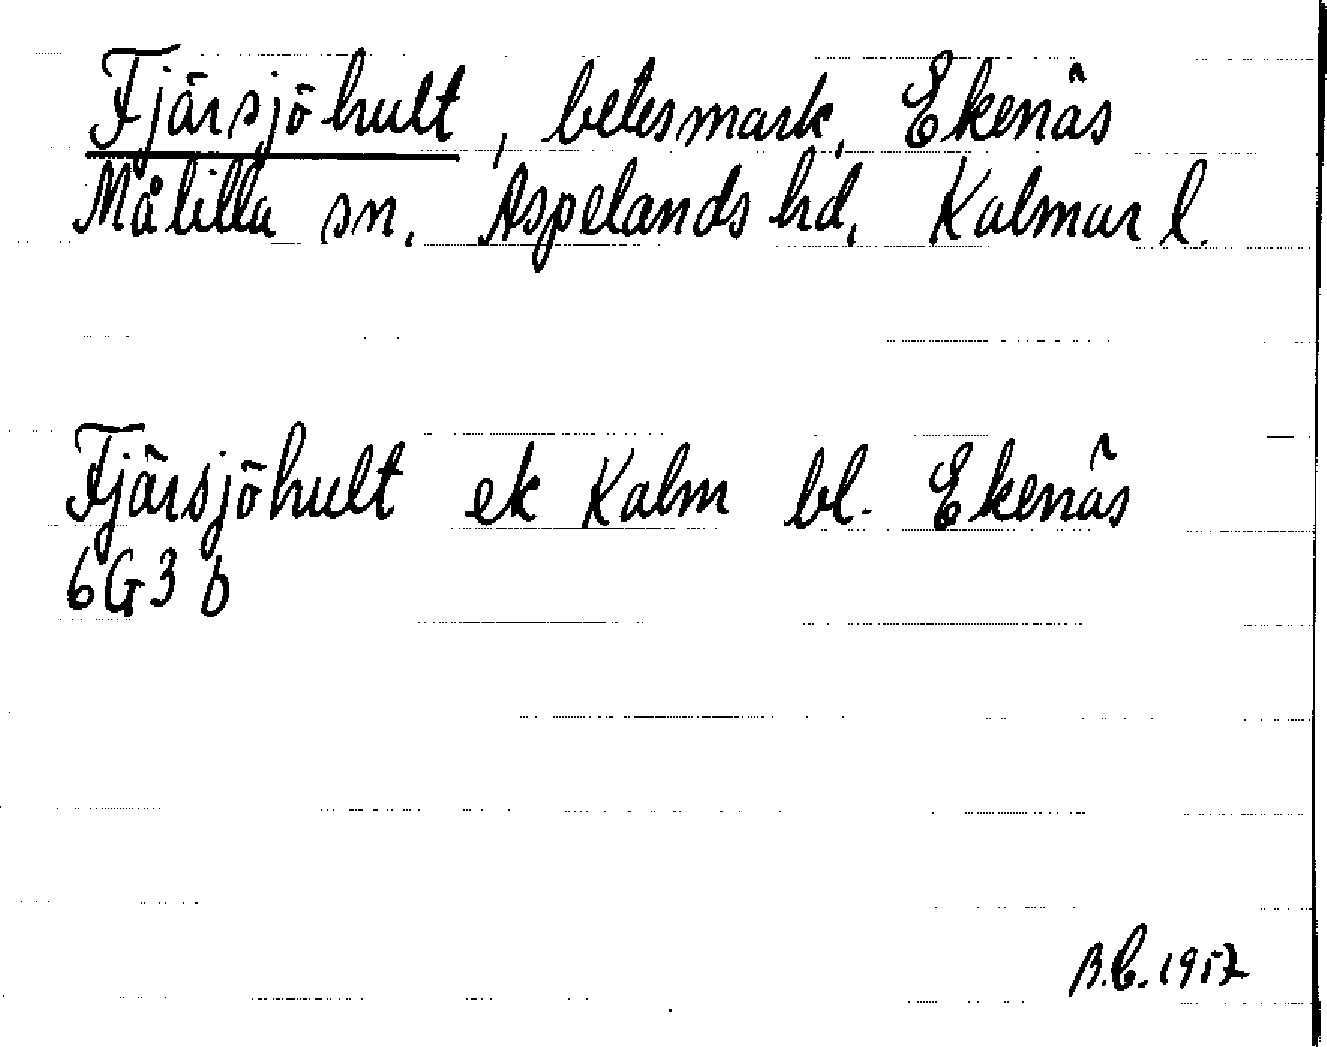 Fjärsjöhult, betesmark, Ekenäs
Målilla sn, Aspelands hd, Kalmar l.
Fjärsjöhult ek Kalm bl. Ekenäs
6G3 b
B.C. 1957